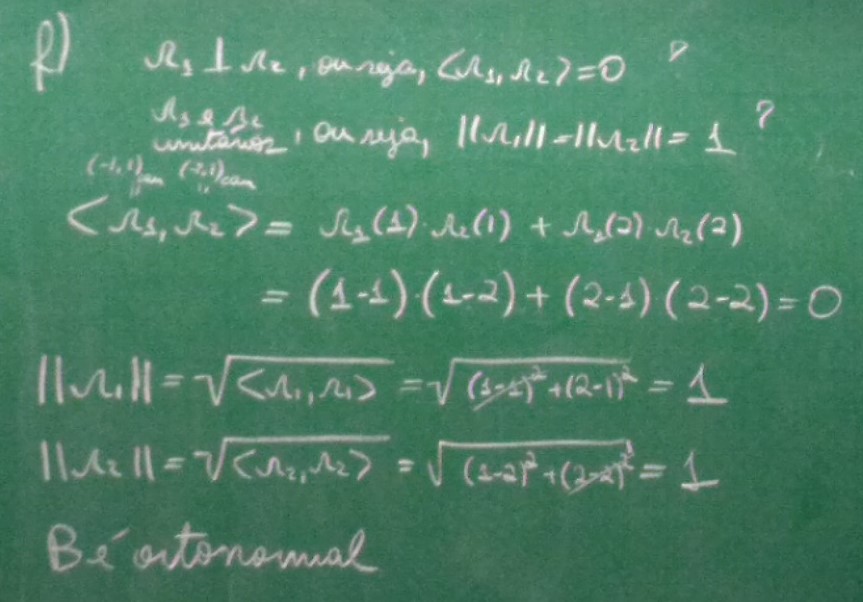 f) r₁ ⊥ r₂, ou seja, <r₁, r₂> = 0 ?
r₁ e r₂
unitários, ou seja, ||r₁|| = ||r₂|| = 1 ?
(-1,1)can (-2,1)can
<r₁, r₂> = r₁(1)·r₂(1) + r₁(2)·r₂(2)
= (1-1)·(1-2) + (2-1)(2-2) = 0
||r₁|| = √<r₁, r₁> = √(1-1)² + (2-1)² = 1
||r₂|| = √<r₂, r₂> = √(1-2)² + (2-2)² = 1
B é ortonormal